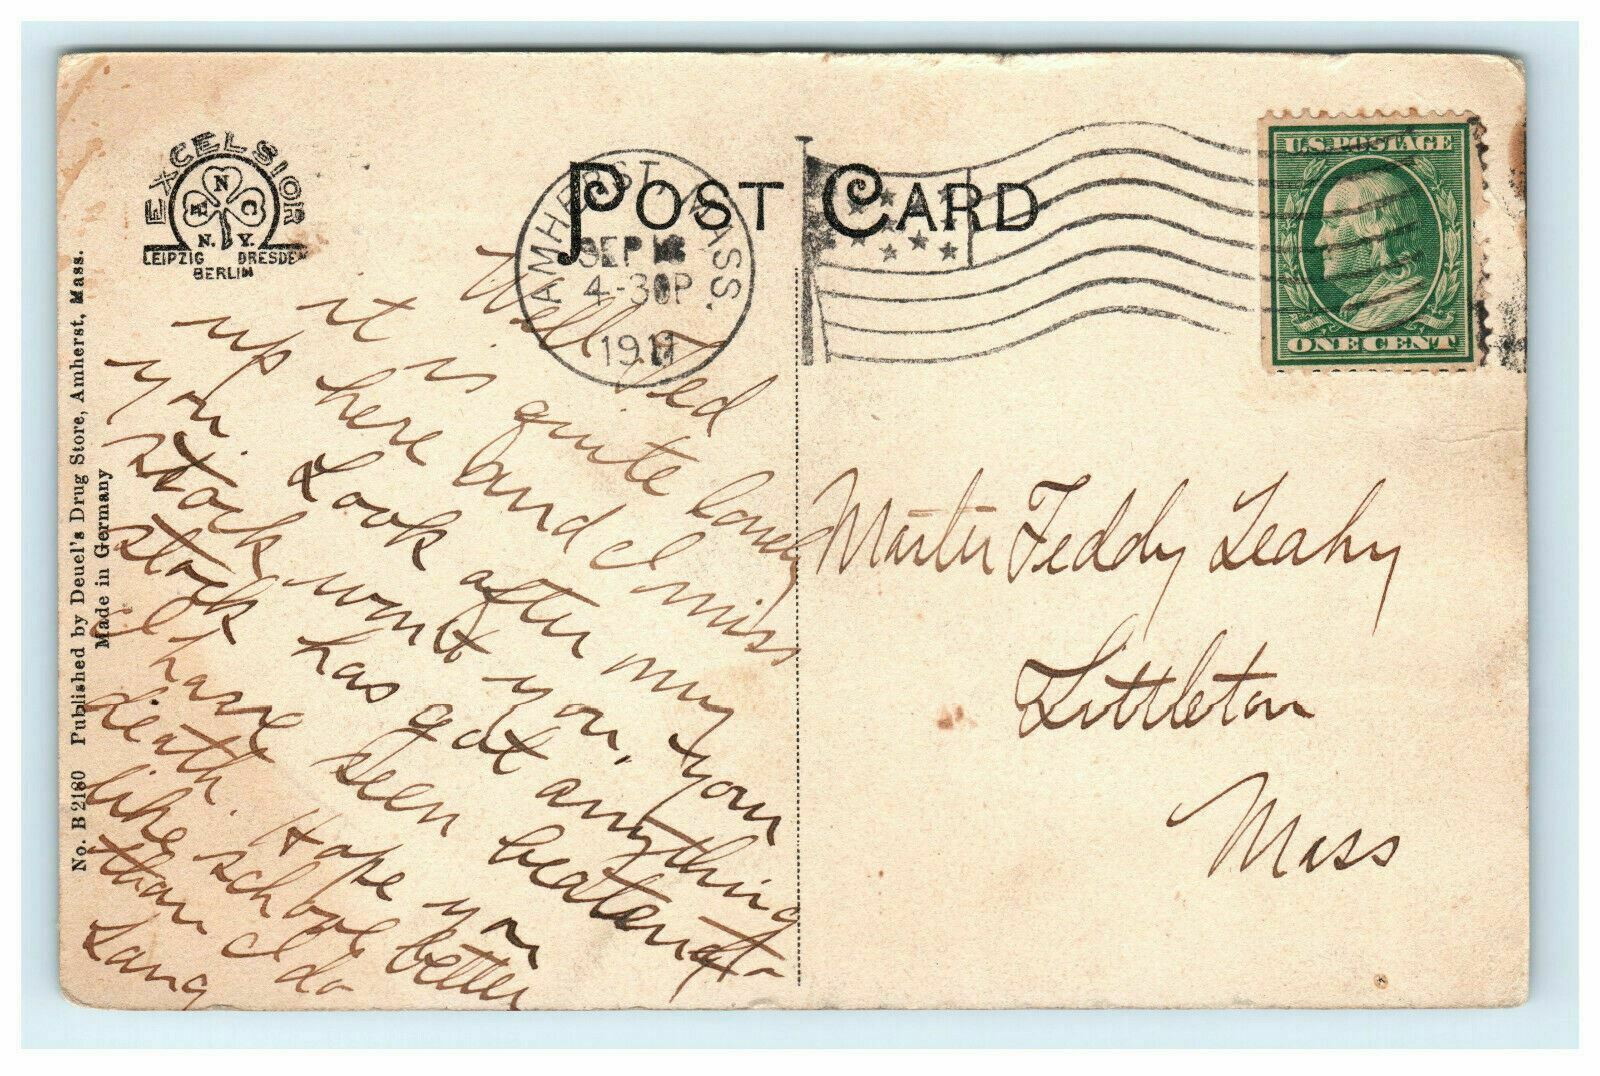 EXCELSIOR
A N C
N. Y.
LEIPZIG DRESDEN
BERLIN
POST CARD
AMHERST, MASS.
SEP
4-30P
1911
U.S. POSTAGE
ONE CENT
No. B 2180 Published by Deuel's Drug Store, Amherst, Mass.
Made in Germany
Well Ted
it is quite lonely
up here and I miss
you. Look after my
stock won't you. your
stock has got anything
I have seen beaten to
death. Hope you
like school better
than I do
Lang
Master Teddy Leahy
Littleton
Mass